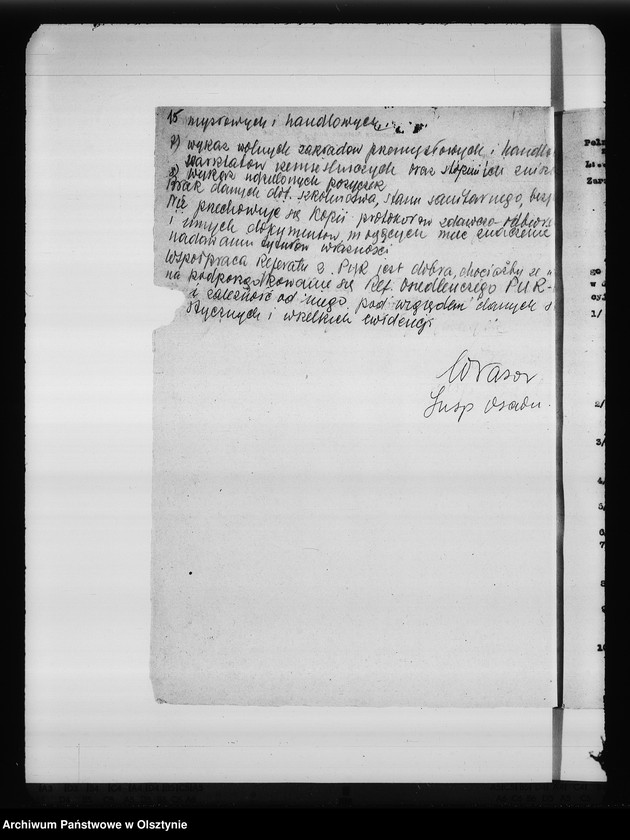 15 mysłowych i handlowych
7) wykaz wolnych zakładów przemysłowych i handlo
warsztatów rzemieślniczych oraz stopień ich zniszc
8) wykaz udzielonych pożyczek
Brak danych dot. szkolnictwa, stanu sanitarnego, bezp
Nie przechowuje się kopii protokołów zdawczo-odbiorc
i innych dokumentów, mogących mieć znaczenie
nadawaniu tytułów własności
Współpraca Referatu z PUR jest dobra, chociażby ze
na podporządkowanie się Ref. Osiedleńczego PUR-
i zależność od niego pod względem danych s
stycznych i wszelkich ewidencji
Insp Osadn.
Pol
Zar
go
w
1/
2/
3/
4/
5/
6
7
10
Archiwum Państwowe w Olsztynie